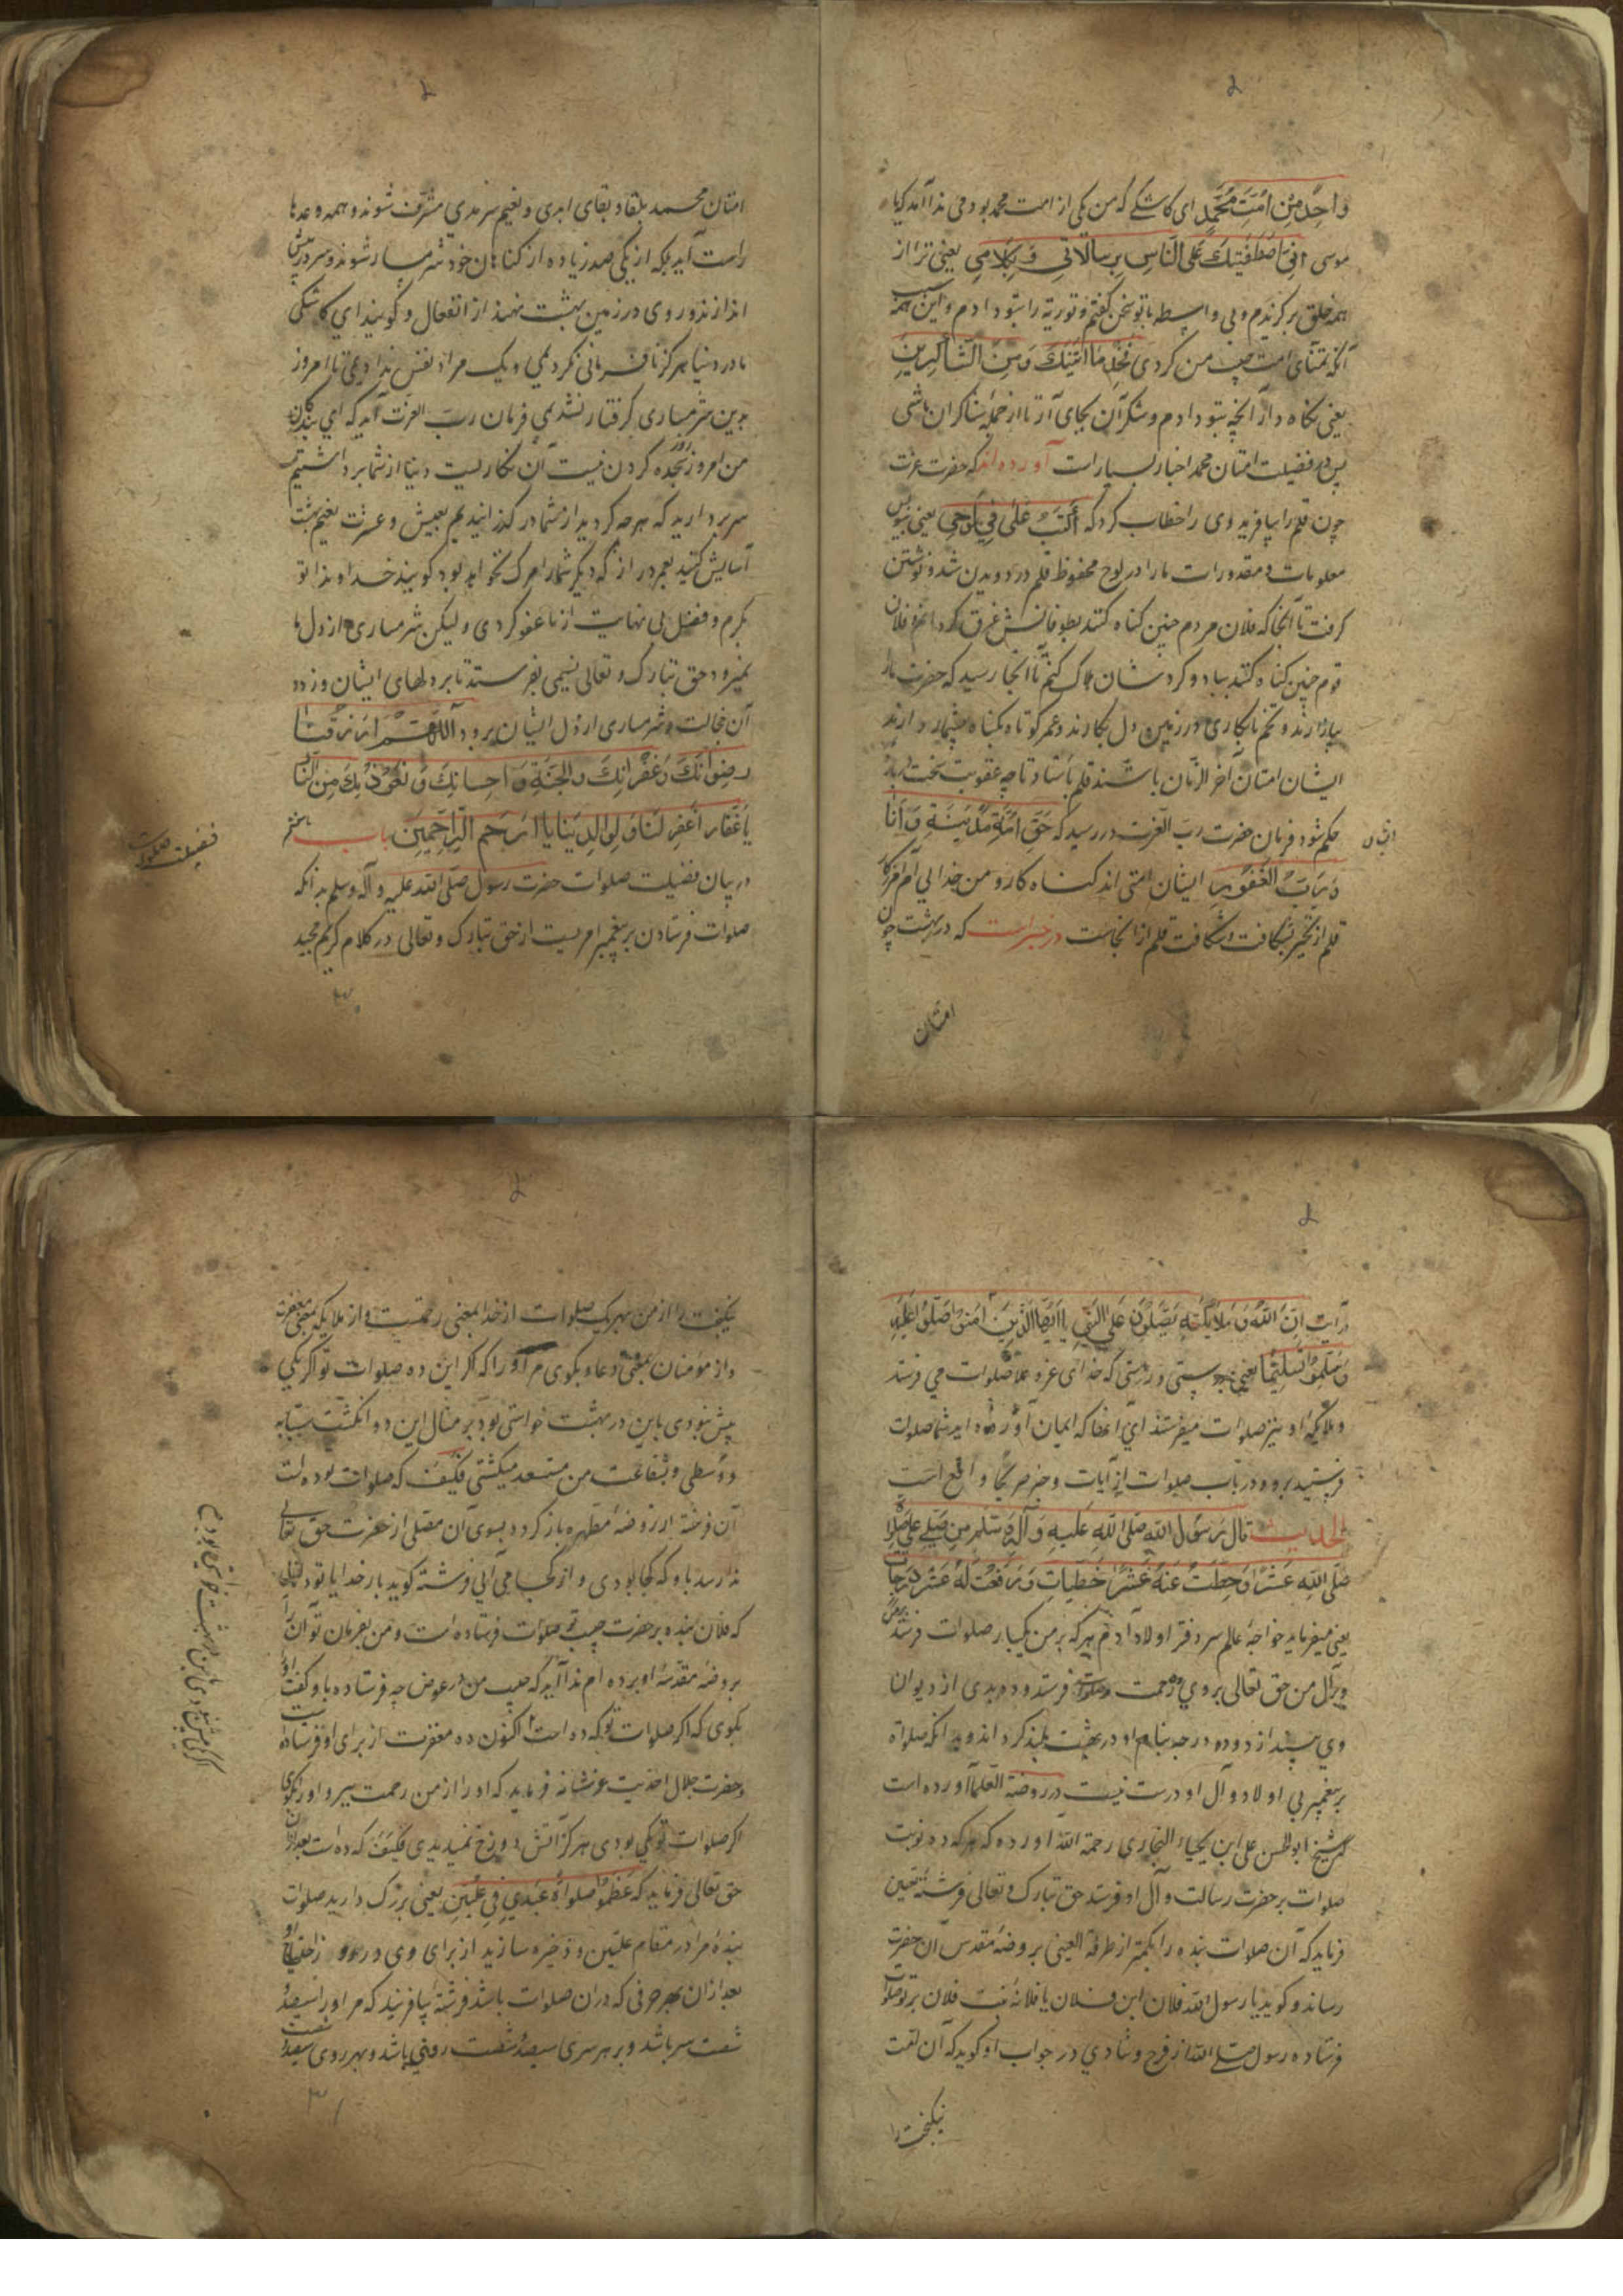 واحِدٌ مِنْ اُمَّتِ مُحَمَّدٍ ای کاشکے که من یکی از امت محمد بودمی ندا آمد که یا
موسی اِنِّی اصْطَفَیْتُكَ عَلَی النَّاسِ بِرِسَالَاتِی وَ بِکَلَامِی یعنی ترا از
همه خلق برگزیدم و بی واسطه با تو سخن گفتم و توریة را بتو دادم و این همه
آنکه تمنای امت حبیب من کردی فَخُذْ مَا آتَیْتُكَ وَ مِنَ الشَّاکِرِینَ
یعنی نگاه دار آنچه بتو دادم و شکر آن بجای آر تا از جمله شاکران باشی
پس در فضیلت امتان محمد اخبار بسیار است آورده اند که حضرت عزت
چون قلم را بیافرید وی را خطاب کرد که اُکْتُبْ عِلْمِی فِی لَوْحِی یعنی بنویس
معلومات و مقدورات ما را در لوح محفوظ قلم در دویدن شد و نوشتن
گرفت تا آنجا که فلان مردم چنین گناه کنند بطوفانش غرق گردانم و فلان
قوم چنین گناه کنند بباد و گرد شان هلاک کنم تا آنجا رسید که حضرت ما را
بیازارند و تخم نابکاری در زمین دل بکارند و عمر کوتاه و گناه بیشمار دارند
ایشان امتان آخر الزمان باشند قلم باستاد تا چه عقوبت سخت
حکم شود فرمان حضرت رب العزت در رسید که حَقِّ اُمَّةٍ مُذْنِبَةٍ وَ اَنَا
رَبُّ الْغَفُورُ ایشان امتی اند گناه کار و من خدا لی ام آمرزگار
قلم از تحیر بشکافت و شکافت قلم از آنجاست در خبر است که در بهشت چون
امتان
امتان محمد بلقا و بقای ابدی و نعیم سرمدی مشرف شوند و همه وعدها
راست آید بلکه از یکی صد زیاده از گناهان خود شرمسار شوند و سر در پیش
اندازند و روی در زمین بهشت نهند از انفعال و گویند ای کاشکی
ما در دنیا هرگز نافرمانی نکردیمی و یک مراد نفس ندادیمی تا امروز
بدین شرمساری گرفتار نشدیمی فرمان رب العزت آید که ای بندگان
من امروز روز سجده کردن نیست آن تکالیفست دنیا از شما برداشتیم
سر بردارید که هر چه کردید از شما در گذرانیدیم بعیش و عشرت نعیم بهشت
آسایش کنید بعمر دراز که دیگر شما را مرگ نخواهد بود گویند خداوندا تو
بکرم و فضل بی نهایت از ما عفو کردی و لیکن شرمساری از دل ما
نمیرود حق تبارک و تعالی نسیمی بفرستد تا بر دلهای ایشان وزد
آن خجالت و شرمساری از دل ایشان برود اَللّٰهُمَّ ارْزُقْنَا
رِضْوَانَكَ وَ غُفْرَانَكَ وَ الْجَنَّةِ وَ اِحْسَانِكَ وَ نَعُوذُ بِكَ مِنَ النَّارِ
یَا غَفَّارُ اغْفِرْ لَنَا وَ لِوَالِدَیْنَا یَا اَرْحَمَ الرَّاحِمِینَ باب
در بیان فضیلت صلوات حضرت رسول صلی الله علیه و آله و سلم بدانکه
صلوات فرستادن بر پیغمبر امریست از حق تبارک و تعالی در کلام کریم مجید
فضیلت صلوات
درآیت اِنَّ اللّٰهَ وَ مَلَائِکَتَهُ یُصَلُّونَ عَلَی النَّبِیِّ یَا اَیُّهَا الَّذِینَ آمَنُوا صَلُّوا عَلَیْهِ
وَ سَلِّمُوا تَسْلِیمًا یعنی بدرستی و راستی که خدای عز و علا صلوات می فرستد
و ملایکه او نیز صلوات میفرستند ای آنها که ایمان آورده اید شما صلوات
فرستید برو و در باب صلوات از آیات و خبر صریحا واقع است
الحدیث قَالَ رَسُولُ اللّٰهِ صَلَّی اللّٰهُ عَلَیْهِ وَ آلِهِ وَ سَلَّمَ مَنْ صَلَّی عَلَیَّ صَلٰوةً
صَلَّی اللّٰهُ عَشْرًا وَ حُطَّتْ عَنْهُ عَشْرًا خَطِیَّاتٍ وَ رُفِعَتْ لَهُ عَشْرُ دَرَجَاتٍ
یعنی میفرماید خواجه عالم سر دفتر اولاد آدم هر که بر من یکبار صلوات فرستد
و بر آل من حق تعالی بروی ده رحمت فرستد و ده بدی از دیوان
وی بیندازد و ده درجه بنام او در بهشت بلند گرداند و بدانکه صلواة
بر پیغمبر بی اولاد و آل او درست نیست در روضة العلما آورده است
شیخ ابو الحسن علی ابن یحیاء البخاری رحمة الله آورده که هر که ده نوبت
صلوات بر حضرت رسالت و آل او فرستد حق تبارک و تعالی فرشته تعین
فرماید که آن صلوات بنده را بکمتر از طرفة العینی بروضه مقدس آن حضرت
رساند و گوید یا رسول الله فلان ابن فلان یا فلانه بنت فلان بر تو صلوات
فرستاده رسول صلی الله از فرح و شادی در جواب او گوید که آن
نیکبخت را
نیکبخت را از من بهر یک صلوات از خدا بمعنی رحمتست و از ملایکه بمعنی مغفرت
و از مؤمنان بمعنی دعاء بگوی مر او را که اگر این ده صلوات تو اگر یکی
بیش نبودی باین در بهشت خواستی بود بر مثال این دو انگشت سبابه
و وسطی و بشفاعت من مستسعد میگشتی فکیف که صلوات تو ده است
آن فرشته از روضه مطهره باز گردد بسوی آن مصلی از حضرت حق تعالی
ندا رسد باو که کجا بودی و از کجا می آیی فرشته گوید بار خدایا تو داناتری
که فلان بنده بر حضرت حبیب تو صلوات فرستاده است و من بفرمان تو آن را
بروضه مقدسه او برده ام ندا آید که حبیب من در عوض چه فرستاده باو گفت او را
بگوی که اگر صلوات تو که ده است اکنون ده مغفرت از برای او فرستاده است
و حضرت جلال احدیت عز شانه فرماید که او را از من رحمت ببر و او را بگوی
اگر صلوات تو یکی بودی هرگز آتش دوزخ نمیدیدی فکیف که ده است بعد از آن
حق تعالی فرماید که عَظِّمُوا صَلَوَاةَ عَبْدِی فِی عِلِّیِّینَ یعنی بزرگ دارید صلوات
بنده مرا در مقام علیین و ذخیره سازید از برای وی در روز احتیاج او
بعد از آن بهر حرفی که در آن صلوات باشد فرشته بیافریند که مر او را سیصد
شصت سر باشد و بر هر سری سیصد شصت روئی باشد و بهر روی سیصد شصت
اگر یکی بیش نبودی باین در بهشت خواستی بود